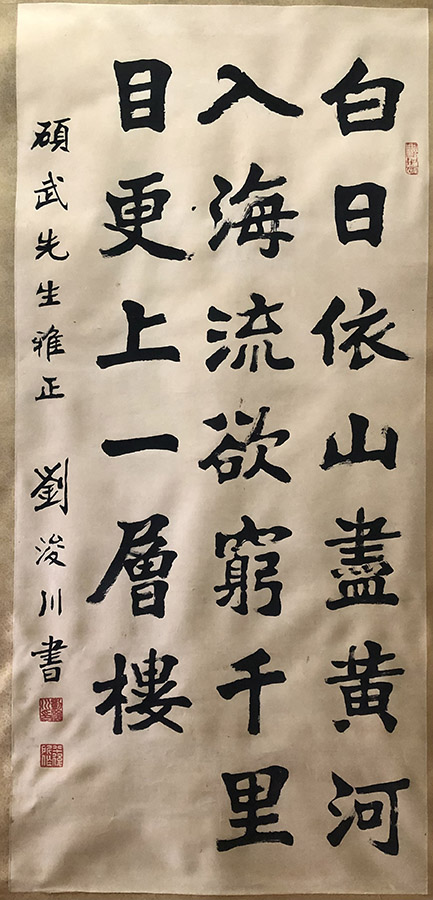 白日依山盡黄河
入海流欲窮千里
目更上一層樓
碩武先生雅正 劉浚川書